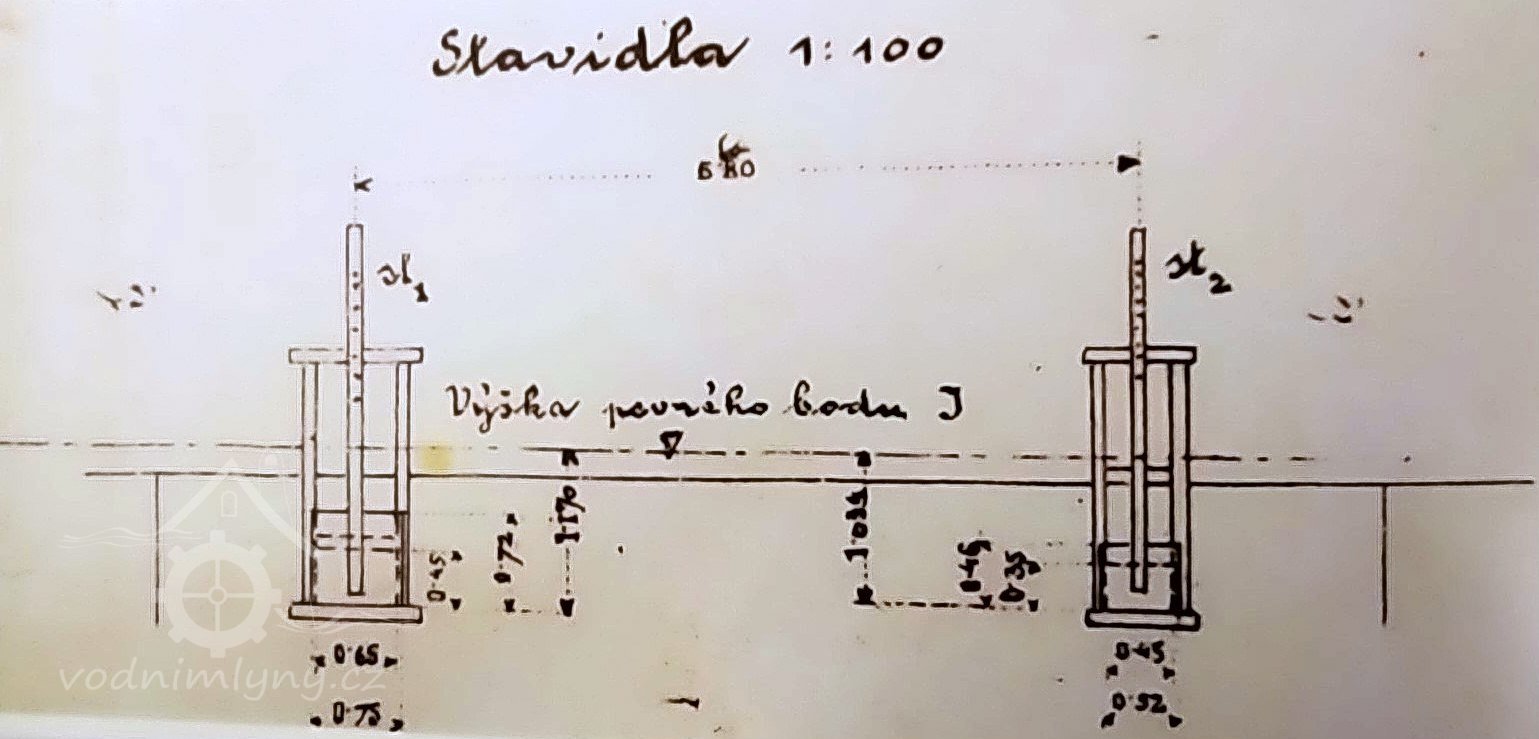 Stavidla 1:100
st₁
st₂
Výška pevného bodu I
1.170
0.72
0.45
0.35
0.65
0.75
0.45
0.52
vodnimlyny.cz